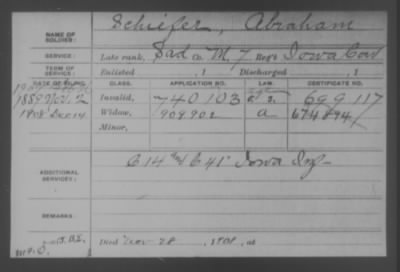 NAME OF SOLDIER: Schiefer, Abraham
SERVICE: Late rank, Sad Co. M, 7 Reg't Iowa Cav
TERM OF SERVICE: Enlisted , 1 Discharged , 1
DATE OF FILING. CLASS. APPLICATION NO. LAW. CERTIFICATE NO.
1889 Nov. 2 Invalid, 740103 699117
1908 Dec 14 Widow, 909902 a 674894
Minor,
ADDITIONAL SERVICES: C 14 and C 41" Iowa Inf
REMARKS:
Died Nov 28, 1908, at